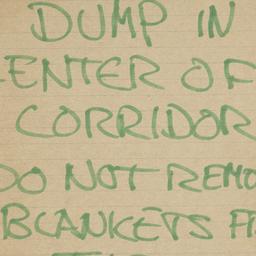 DUMP IN
ENTER OF
CORRIDOR
DO NOT REMO
BLANKETS FR